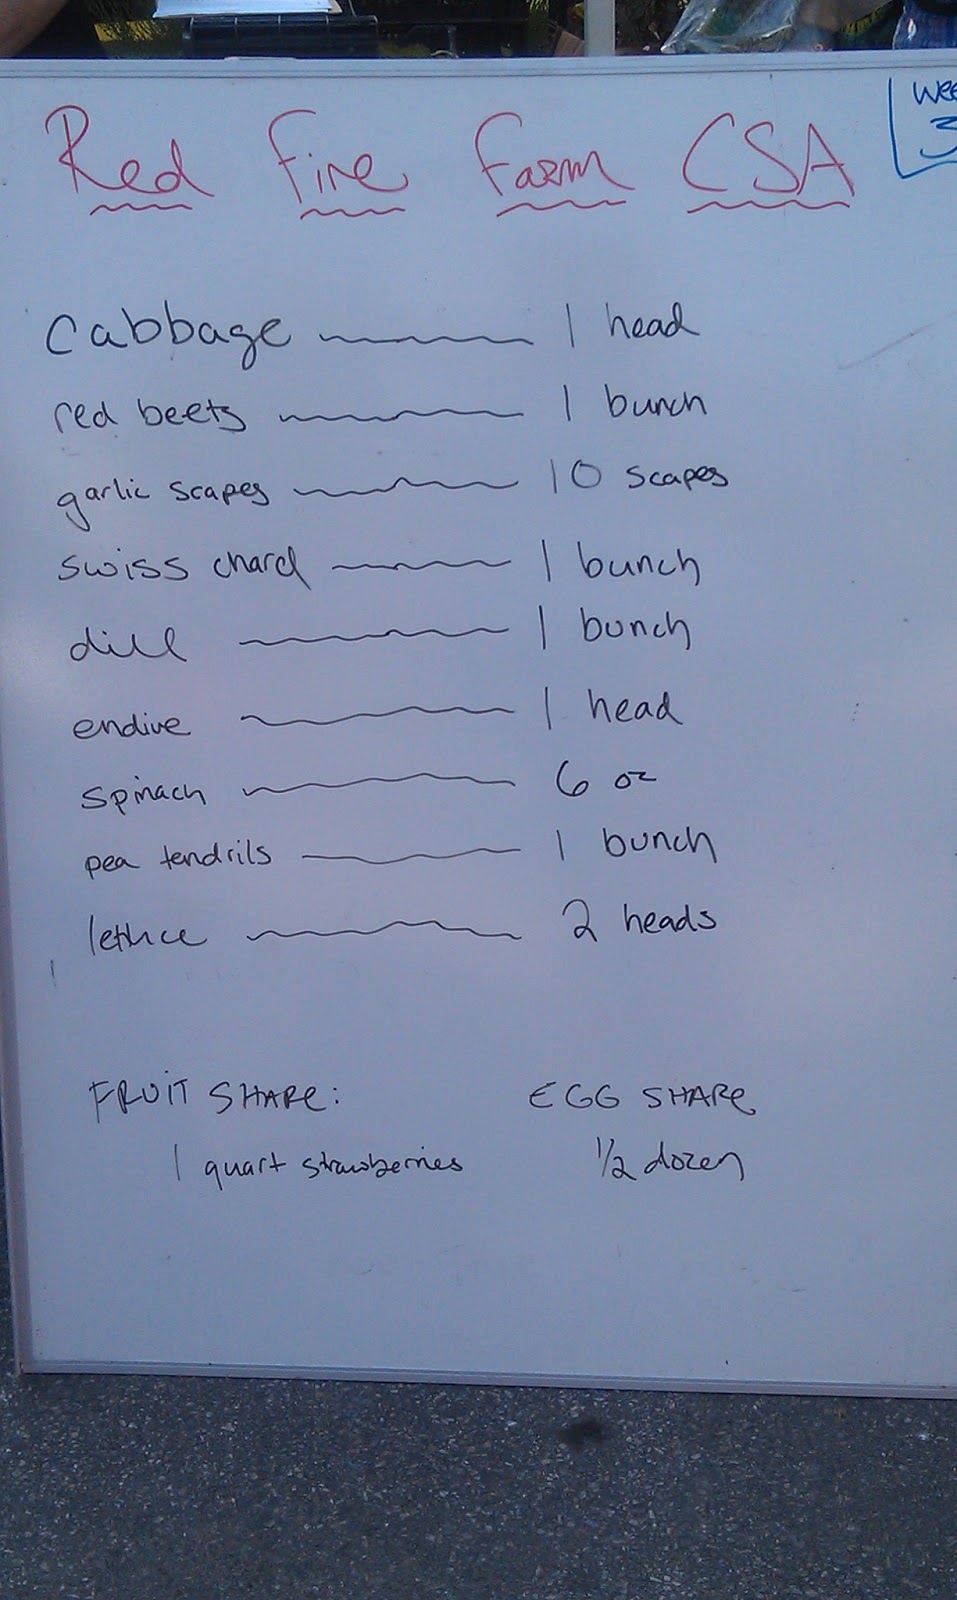 Red Fire Farm CSA
3
Cabbage 1 head
red beets 1 bunch
garlic scapes 10 scapes
swiss chard 1 bunch
dill 1 bunch
endive 1 head
spinach 6 oz
pea tendrils 1 bunch
lettuce 2 heads
FRUIT SHARE: EGG SHARE
1 quart strawberries 1/2 dozen